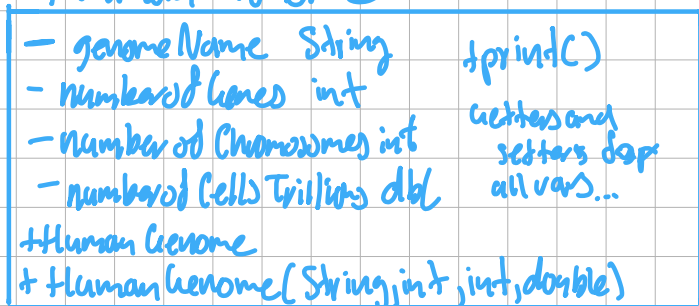 - genomeName String
- numberofGenes int
- numberofChromosomes int
- numberofCellsTrillions dbl
+print()
Getters and
setters for
all vars...
+HumanGenome
+ HumanGenome(String,int,int,double)